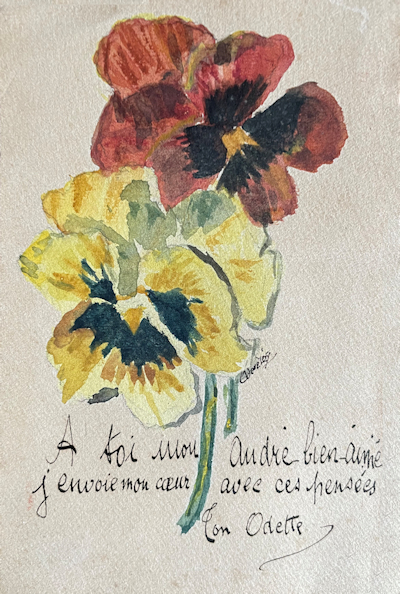 A toi mon André bien-aimé
j'envoie mon cœur avec ces pensées
Ton Odette